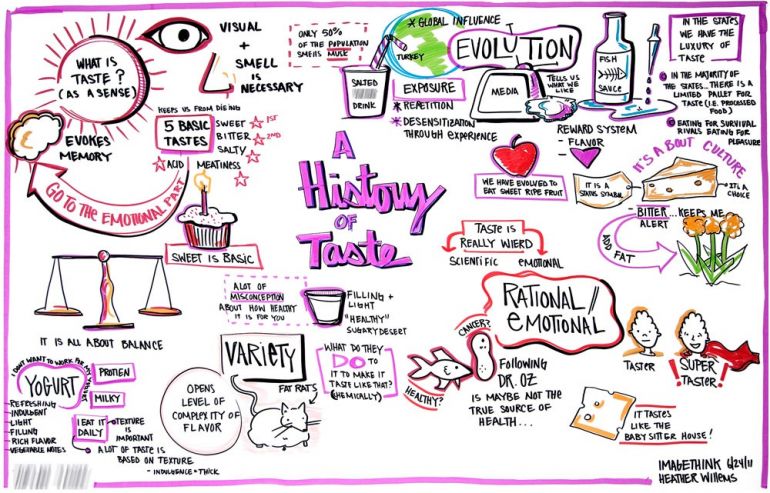 WHAT IS
TASTE?
(AS A SENSE)
VISUAL
+
SMELL
IS
NECESSARY
EVOKES
MEMORY
KEEPS US FROM DIEING
5 BASIC
TASTES
SWEET 1ST
BITTER 2ND
SALTY
ACID MEATINESS
GO TO THE EMOTIONAL PART
SWEET IS BASIC
IT IS ALL ABOUT BALANCE
ONLY 50%
OF THE POPULATION
SMELLS MUSK
SALTED
DRINK
* GLOBAL INFLUENCE
TURKEY
EVOLUTION
EXPOSURE
* REPETITION
* DESENSITIZATION
THROUGH EXPERIENCE
MEDIA
TELLS US
WHAT WE
LIKE
FISH
SAUCE
REWARD SYSTEM
- FLAVOR
WE HAVE EVOLVED TO
EAT SWEET RIPE FRUIT
IN THE STATES
WE HAVE THE
LUXURY OF
TASTE
IN THE MAJORITY OF
THE STATES... THERE IS A
LIMITED PALLET FOR
TASTE (I.E. PROCESSED
FOOD)
EATING FOR SURVIVAL
RIVALS EATING FOR
PLEASURE
IT'S ABOUT CULTURE
IT IS A
STATUS SYMBOL
IT'S A
CHOICE
- BITTER... KEEPS ME
ALERT
ADD FAT
A
History
OF
Taste
TASTE IS
REALLY WIERD
SCIENTIFIC EMOTIONAL
RATIONAL //
EMOTIONAL
A LOT OF
MISCONCEPTION
ABOUT HOW HEALTHY
IT IS FOR YOU
FILLING +
LIGHT
"HEALTHY"
SUGARY DESERT
VARIETY
OPENS
LEVEL OF
COMPLEXITY OF
FLAVOR
FAT RATS
WHAT DO THEY
DO TO
IT TO MAKE IT
TASTE LIKE THAT?
(CHEMICALLY)
CANCER?
HEALTHY?
FOLLOWING
DR. OZ
IS MAYBE NOT THE
TRUE SOURCE OF
HEALTH...
TASTER
SUPER
TASTER!
IT TASTES
LIKE THE
BABYSITTER HOUSE!
I DON'T WANT TO WORK FOR MY YOGURT
YOGURT
PROTIEN
MILKY
REFRESHING
INDULGENT
LIGHT
FILLING
RICH FLAVOR
VEGETABLE NOTES
I EAT IT
DAILY
TEXTURE
IS
IMPORTANT
A LOT OF TASTE IS
BASED ON TEXTURE
- INDULGENCE = THICK
IMAGETHINK 6/24/11
HEATHER WILLEMS